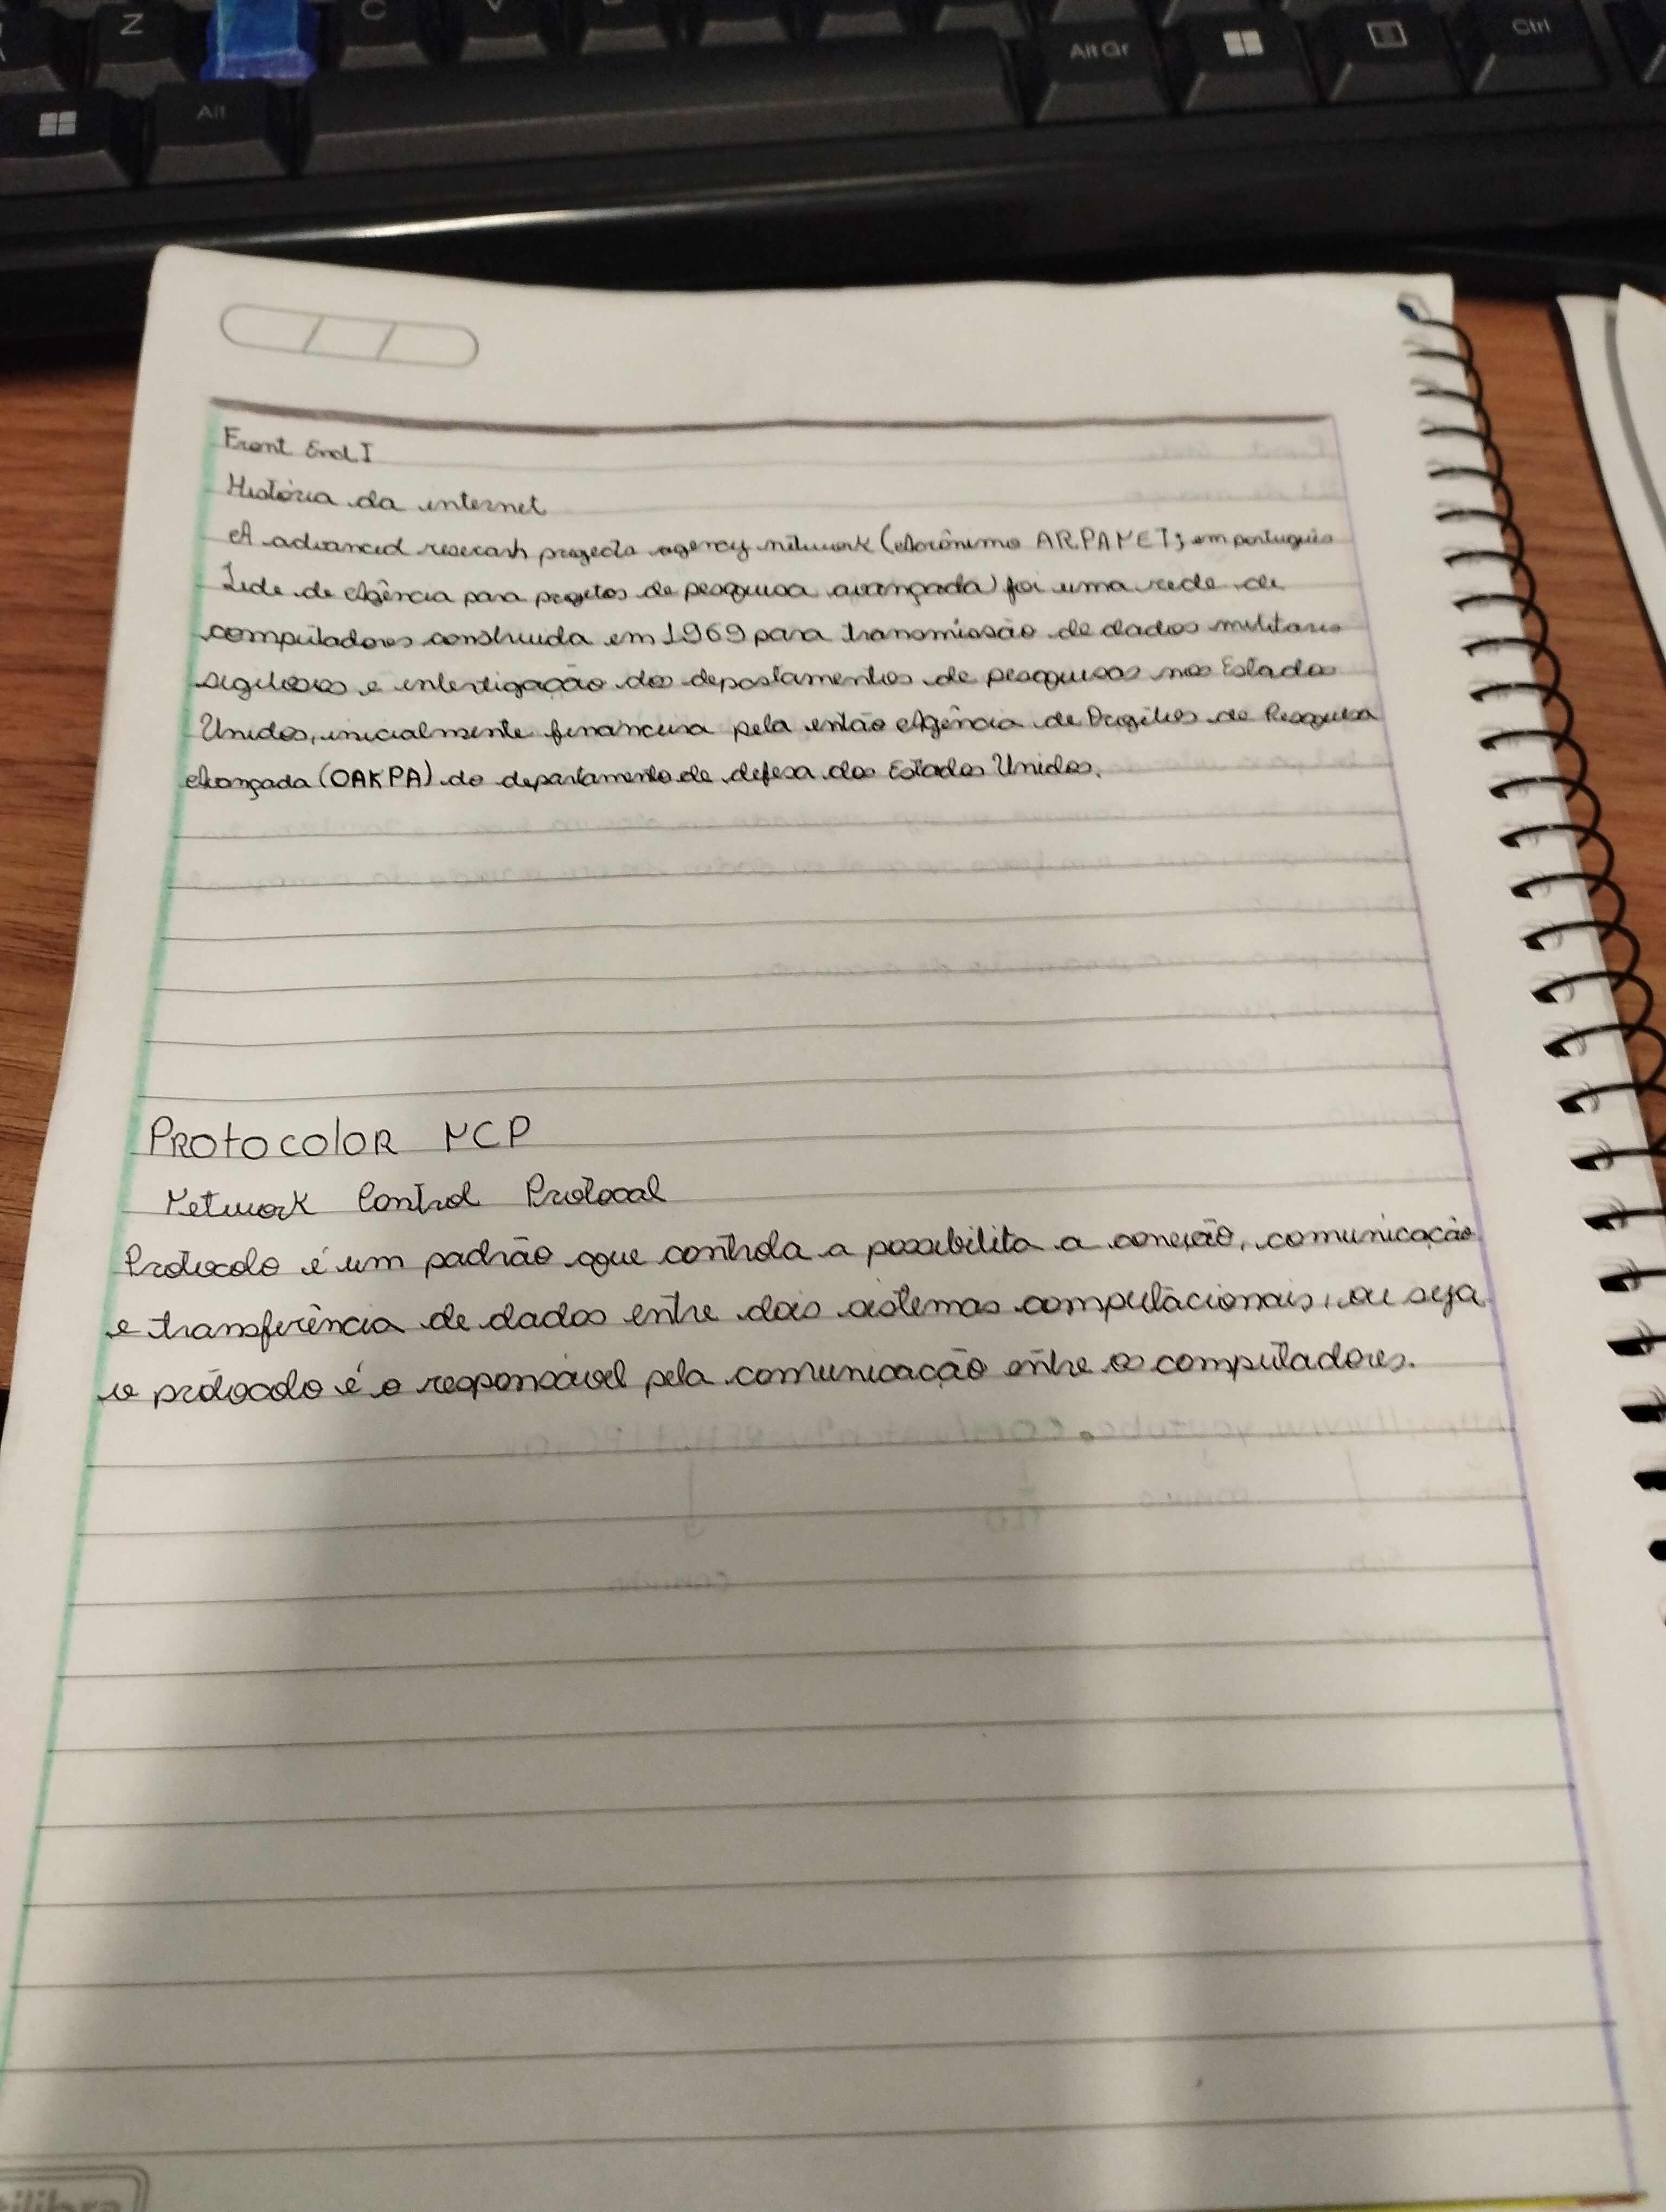 Z
C
V
Alt
Alt Gr
Ctrl
Front End I
História da internet
A advanced reserash progects agency network (Acrônimo ARPANET; em português
Rede de Agência para projetos de pesquisa avançada) foi uma rede de
computadores construida em 1969 para transmissão de dados militares
sigilosos e interligação dos depostamentos de pesquisas nos Estados
Unidos, inicialmente financeira pela então Agência de Projetos de Pesquisa
Avançada (OAKPA) do departamento de defesa dos Estados Unidos.
PROtocoloR NCP
Network Control Protocal
Protocolo é um padrão que controla a possibilita a conexão, comunicação
e transferência de dados entre dois sistemas computacionais, ou seja
o protocolo é o responsável pela comunicação entre os computadores.
tilibra